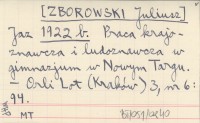 [ZBOROWSKI Juliusz]
Jaz 1922 b. Praca krajo-
znawcza i ludoznawcza w
gimnazjum w Nowym Targu.
Orli Lot (Kraków) 3, nr 6:
94.
MT